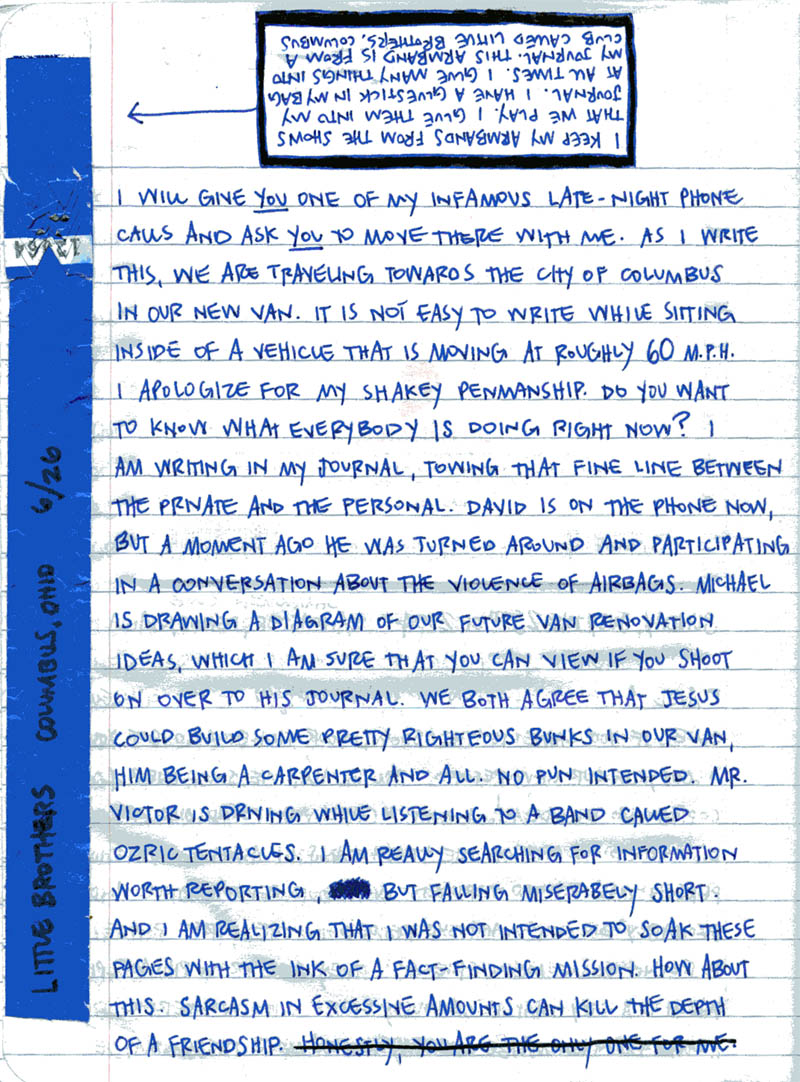 I KEEP MY ARMBANDS FROM THE SHOWS
THAT WE PLAY. I GLUE THEM INTO MY
JOURNAL. I HAVE A GLUESTICK IN MY BAG
AT ALL TIMES. I GLUE MANY THINGS INTO
MY JOURNAL. THIS ARMBAND IS FROM A
CLUB CALLED LITTLE BROTHERS. COLUMBUS
I WILL GIVE YOU ONE OF MY INFAMOUS LATE-NIGHT PHONE
CALLS AND ASK YOU TO MOVE THERE WITH ME. AS I WRITE
THIS, WE ARE TRAVELING TOWARDS THE CITY OF COLUMBUS
IN OUR NEW VAN. IT IS NOT EASY TO WRITE WHILE SITTING
INSIDE OF A VEHICLE THAT IS MOVING AT ROUGHLY 60 M.P.H.
I APOLOGIZE FOR MY SHAKEY PENMANSHIP. DO YOU WANT
TO KNOW WHAT EVERYBODY IS DOING RIGHT NOW? I
AM WRITING IN MY JOURNAL, TOWING THAT FINE LINE BETWEEN
THE PRIVATE AND THE PERSONAL. DAVID IS ON THE PHONE NOW,
BUT A MOMENT AGO HE WAS TURNED AROUND AND PARTICIPATING
IN A CONVERSATION ABOUT THE VIOLENCE OF AIRBAGS. MICHAEL
IS DRAWING A DIAGRAM OF OUR FUTURE VAN RENOVATION
IDEAS, WHICH I AM SURE THAT YOU CAN VIEW IF YOU SHOOT
ON OVER TO HIS JOURNAL. WE BOTH AGREE THAT JESUS
COULD BUILD SOME PRETTY RIGHTEOUS BUNKS IN OUR VAN,
HIM BEING A CARPENTER AND ALL. NO PUN INTENDED. MR.
VICTOR IS DRIVING WHILE LISTENING TO A BAND CALLED
OZRIC TENTACLES. I AM REALLY SEARCHING FOR INFORMATION
WORTH REPORTING, BUT FALLING MISERABELY SHORT.
AND I AM REALIZING THAT I WAS NOT INTENDED TO SOAK THESE
PAGES WITH THE INK OF A FACT-FINDING MISSION. HOW ABOUT
THIS. SARCASM IN EXCESSIVE AMOUNTS CAN KILL THE DEPTH
OF A FRIENDSHIP. HONESTLY, YOU ARE THE ONLY ONE FOR ME.
LITTLE BROTHERS COLUMBUS, OHIO 6/26